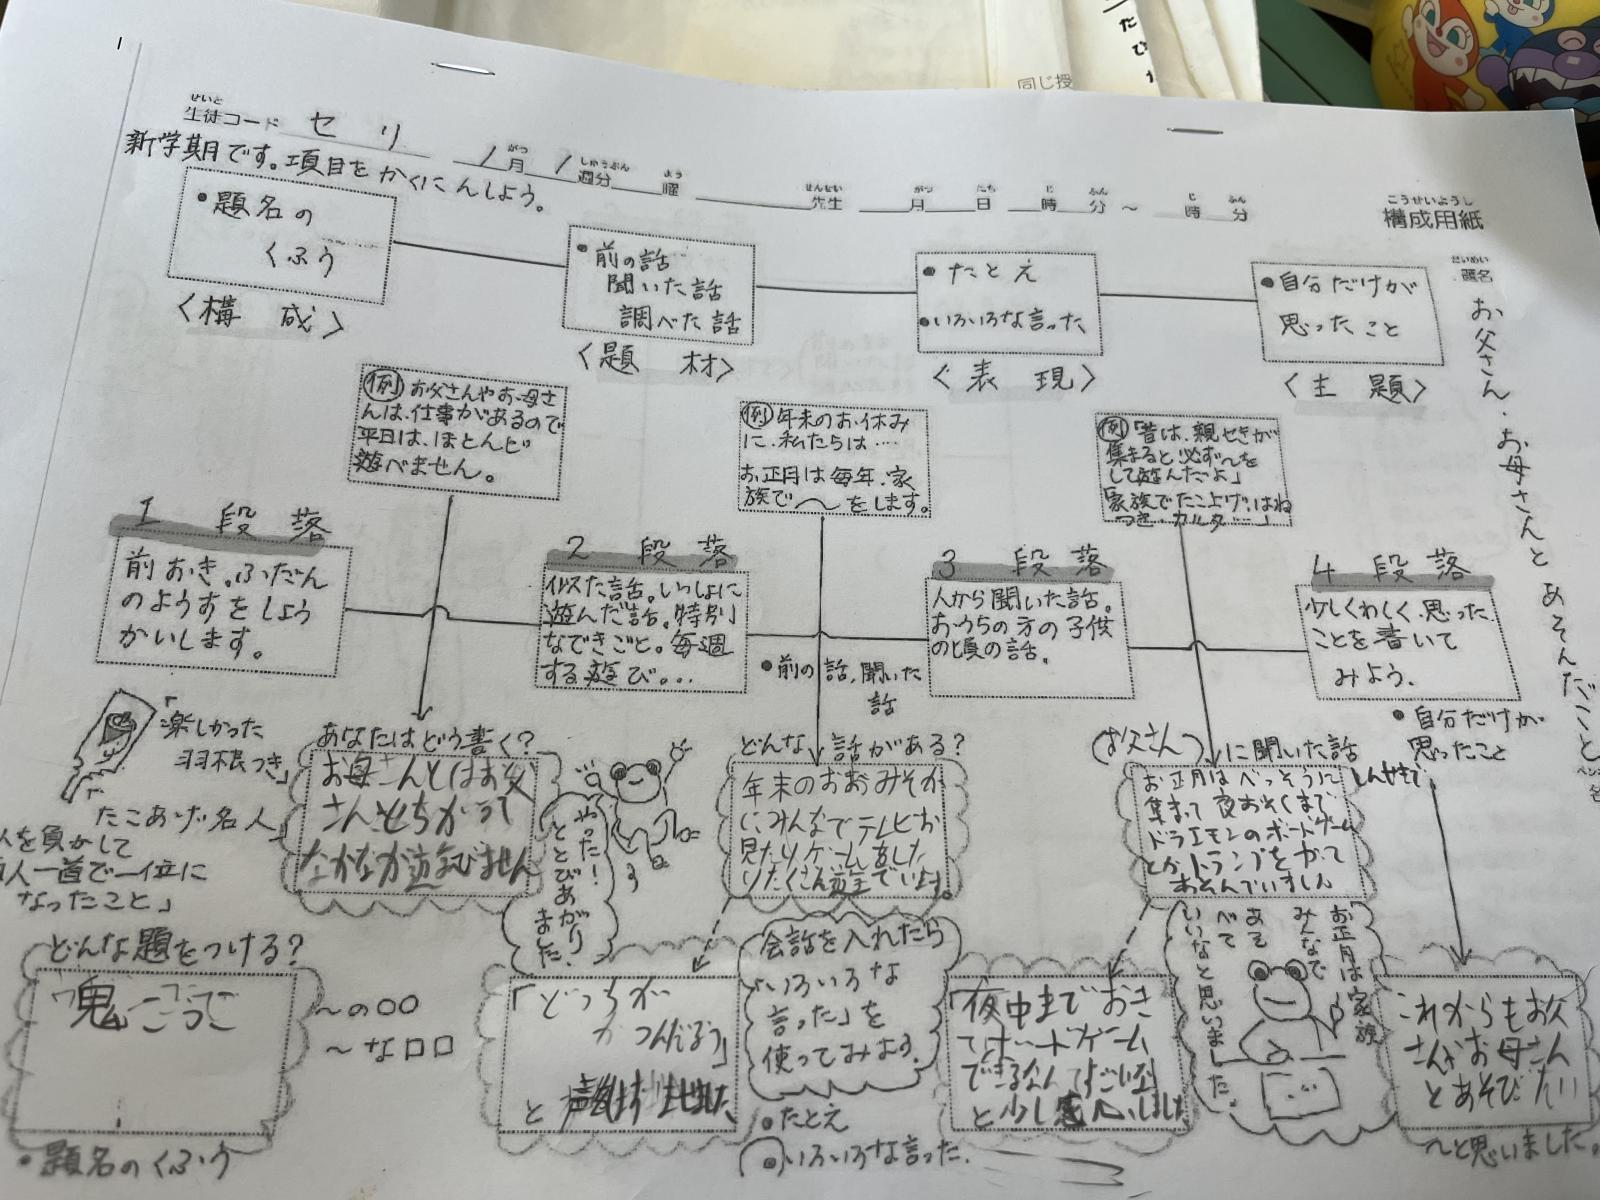 たび
同じ授
せいと
生徒コード セリ
1月 1週分 曜 先生 月 日 時 分 ～ 時 分
がつ しゅうぶん よう せんせい がつ にち じ ふん じ ふん
こうせいようし
構成用紙
新学期です。項目をかくにんしよう。
だいめい
題名
お父さん・お母さんとあそんだこと
・題名の
くふう
〈構 成〉
・前の話
聞いた話
調べた話
〈題 材〉
・たとえ
・いろいろな言った
〈表 現〉
・自分だけが
思ったこと
〈主 題〉
例 お父さんやお母さ
んは、仕事があるので
平日は、ほとんど
遊べません。
例 年末のお休み
に、私たらは……
お正月は毎年、家
族で〜をします。
例 「昔は、親せきが
集まると必ず〜を
して遊んだよ」
「家族でたこ上げ、はね
つき、カルタ…」
1 段 落
前おき。ふだん
のようすをしょう
かいします。
2 段 落
似た話。いっしょに
遊んだ話。特別
なできごと。毎週
する遊び...
・前の話、聞いた
話
3 段 落
人から聞いた話。
おうちの方の子供
の頃の話。
4 段 落
少しくわしく、思った
ことを書いて
みよう。
・自分だけが
思ったこと
「楽しかった
羽根つき」
たこあげ名人」
人を負かして
人一首で一位に
なったこと」
あなたはどう書く?
お母さんとはお父
さんとちがって
なかなか遊びません
やった!
ととびあがり
ました。
どんな話がある?
年末のおおみそか
に、みんなでテレビを
見たり、ゲームをした
りたくさん遊んでいます。
(お父さん)に聞いた話
お正月はべっそうに しんせきで
集まって夜おそくまで
ドラエモンのボードゲーム
とかトランプをかって
あそんでいました
どんな題をつける?
鬼ごっこ
〜の○○
〜な□□
・題名のくふう
「どっちが
かつんだろう」
と
会話を入れたら
「いろいろな
言った」を
使ってみよう。
・たとえ
・いろいろな言った.
「夜中までおき
てボードゲーム
できるなんてすごいな」
と少し感心しました
お正月は家族
みんなで
あそ
べて
いいなと思いました。
これからもお父
さんやお母さん
とあそびたい
〜と思いました。